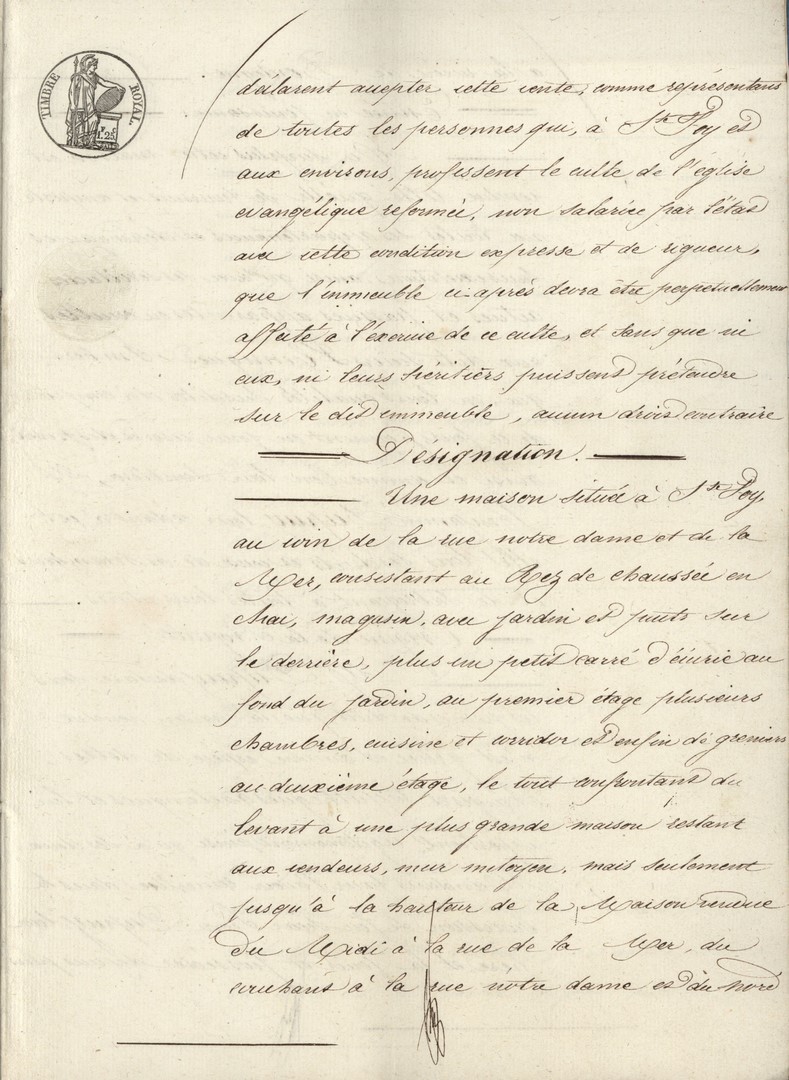 TIMBRE ROYAL.
1F. 25C
déclarent accepter cette vente, comme représentans
de toutes les personnes qui, à Ste Foy et
aux environs, professent le culte de l'église
evangélique reformée, non salariée par l'état
avec cette condition expresse et de rigueur,
que l'immeuble ci-après devra être perpetuellement
affecté à l'exercice de ce culte, et sans que ni
eux, ni leurs héritiers puissent prétendre
sur le dit immeuble, aucun droit contraire
Désignation.
Une maison située à Ste Foy,
au coin de la rue notre dame et de la
Mer, consistant au Rez de chaussée en
chai, magasin, avec jardin et puits sur
le derrière, plus un petit carré d'écurie au
fond du jardin, au premier étage plusieurs
chambres, cuisine et corridor et enfin de greniers
au deuxième étage, le tout confrontant du
levant à une plus grande maison restant
aux vendeurs, mur mitoyen, mais seulement
jusqu'à la hauteur de la Maison vendue
du Midi à la rue de la Mer, du
couchant à la rue notre dame et du nord